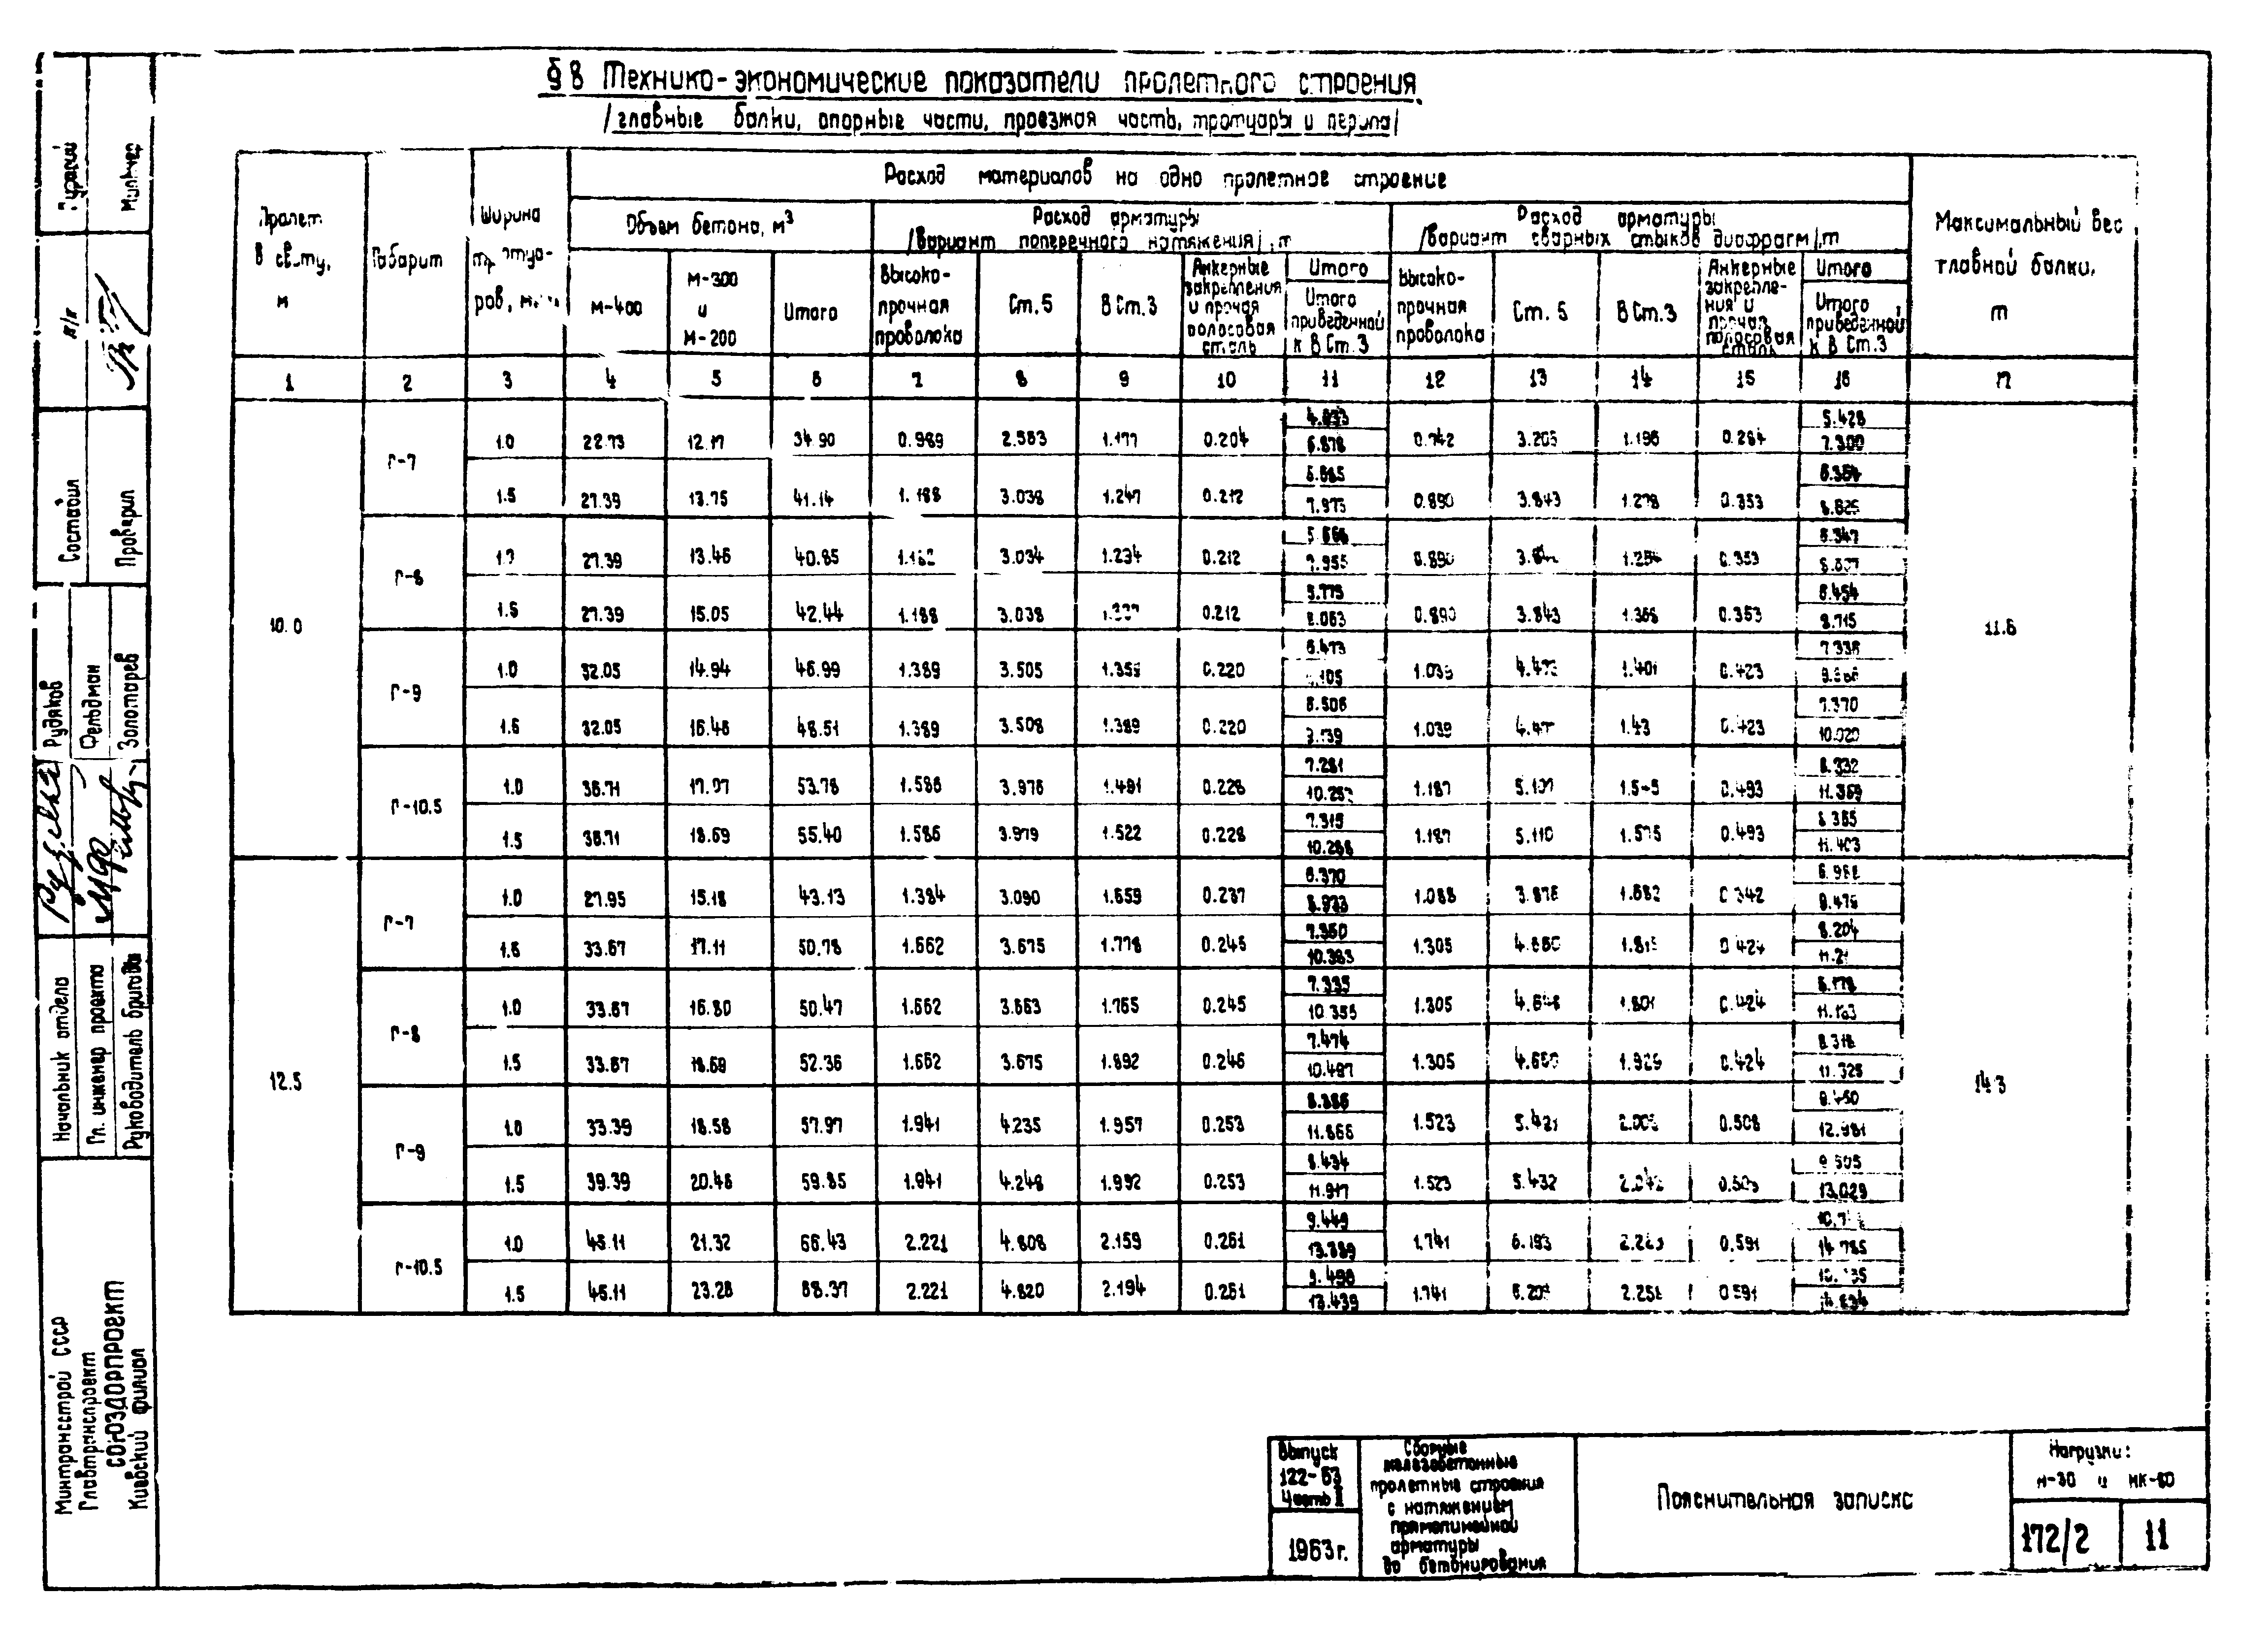 § 8 Технико-экономические показатели пролетного строения
/главные балки, опорные части, проезжая часть, тротуары и перила/
Пролет в свету, м
Габарит
Ширина тротуаров,
Расход материалов на одно пролетное строение
Максимальный вес главной балки, т
Объем бетона, м³
Расход арматуры /вариант поперечного натяжения/, т
Расход арматуры /вариант сварных стыков диафрагм/, т
М-400
М-300 и М-200
Итого
Высоко-прочная проволока
Ст. 5
В Ст. 3
Анкерные закрепления и прочая полосовая сталь
Итого
Итого приведенной к В Ст. 3
Высоко-прочная проволока
Ст. 5
В Ст. 3
Анкерные закрепле-ния и прочая полосовая сталь
Итого
Итого приведенной к В Ст. 3
1 2 3 4 5 6 7 8 9 10 11 12 13 14 15 16 17
10.0
11.6
Г-7
1.0 22.73 12.17 34.90 0.989 2.563 1.177 0.204 6.878 0.742 3.205 1.196 0.284 5.428 7.300
1.5 27.39 13.75 41.14 1.188 3.038 1.247 0.212 5.685 7.975 0.890 3.843 1.278 0.353 6.364
Г-8
27.39 13.46 40.85 3.034 1.234 0.212 0.890 0.353 6.347
1.5 27.39 15.05 42.44 1.188 3.038 0.212 5.775 8.063 0.890 3.843 1.368 0.353 6.454 8.715
Г-9
1.0 32.05 14.94 46.99 1.389 3.505 0.220 6.473 1.039 1.401 0.423
1.5 32.05 16.46 48.51 1.389 3.508 1.389 0.220 6.506 1.039 0.423 7.370 10.020
Г-10.5
1.0 36.71 17.07 53.78 1.586 3.976 1.491 0.228 7.281 1.187 5.107 0.493 8.332 11.369
1.5 36.71 18.69 55.40 1.586 3.979 1.522 0.228 7.315 10.288 1.187 5.110 1.575 0.493 8.365 11.403
12.5
14.3
Г-7
1.0 27.95 15.18 43.13 1.384 3.090 1.659 0.237 6.370 1.088 3.876 1.682 0.342
1.5 33.67 17.11 50.78 1.662 3.675 1.778 0.245 7.360 10.383 1.305 4.660 0.424 8.204
Г-8
1.0 33.67 16.80 50.47 1.662 3.663 1.765 0.245 7.335 10.355 1.305 4.648 1.801 0.424 8.178
1.5 33.67 18.69 52.36 1.662 3.675 1.892 0.246 7.474 10.497 1.305 4.660 0.424 8.318 11.325
Г-9
1.0 33.39 18.58 57.97 1.941 4.235 1.957 0.253 8.386 11.866 1.523 5.421 0.508 12.981
1.5 39.39 20.46 59.85 1.941 4.248 1.992 0.253 8.434 11.917 1.523 5.432 13.029
Г-10.5
1.0 46.11 21.32 66.43 2.221 4.808 2.159 0.261 9.449 13.389 1.741 6.193 0.591 14.785
1.5 45.11 23.28 68.37 2.221 4.820 2.194 0.261 9.498 13.439 1.741 0.591
Мильнер
н/к
Составил
Проверил
Рудяков
Фельдман
Золотарев
Начальник отдела
Гл. инженер проекта
Руководитель бригады
Минтрансстрой СССР
Главтранспроект
СОЮЗДОРПРОЕКТ
Киевский филиал
Выпуск
122-63
Часть II
1963 г.
Сборные
железобетонные
пролетные строения
с натяжением
прямолинейной
арматуры
до бетонирования
Пояснительная записка
Нагрузки:
Н-30 и НК-80
172/2
11